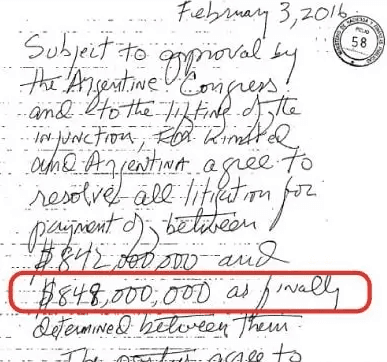 February 3, 2016
FOLIO
58
Subject to approval by
the Argentine Congress
and to the lifting of the
injunction,
and Argentina agree to
resolve all litigation for
payment of between
$842,000,000 and
$848,000,000 as finally
determined between them
The parties agree to